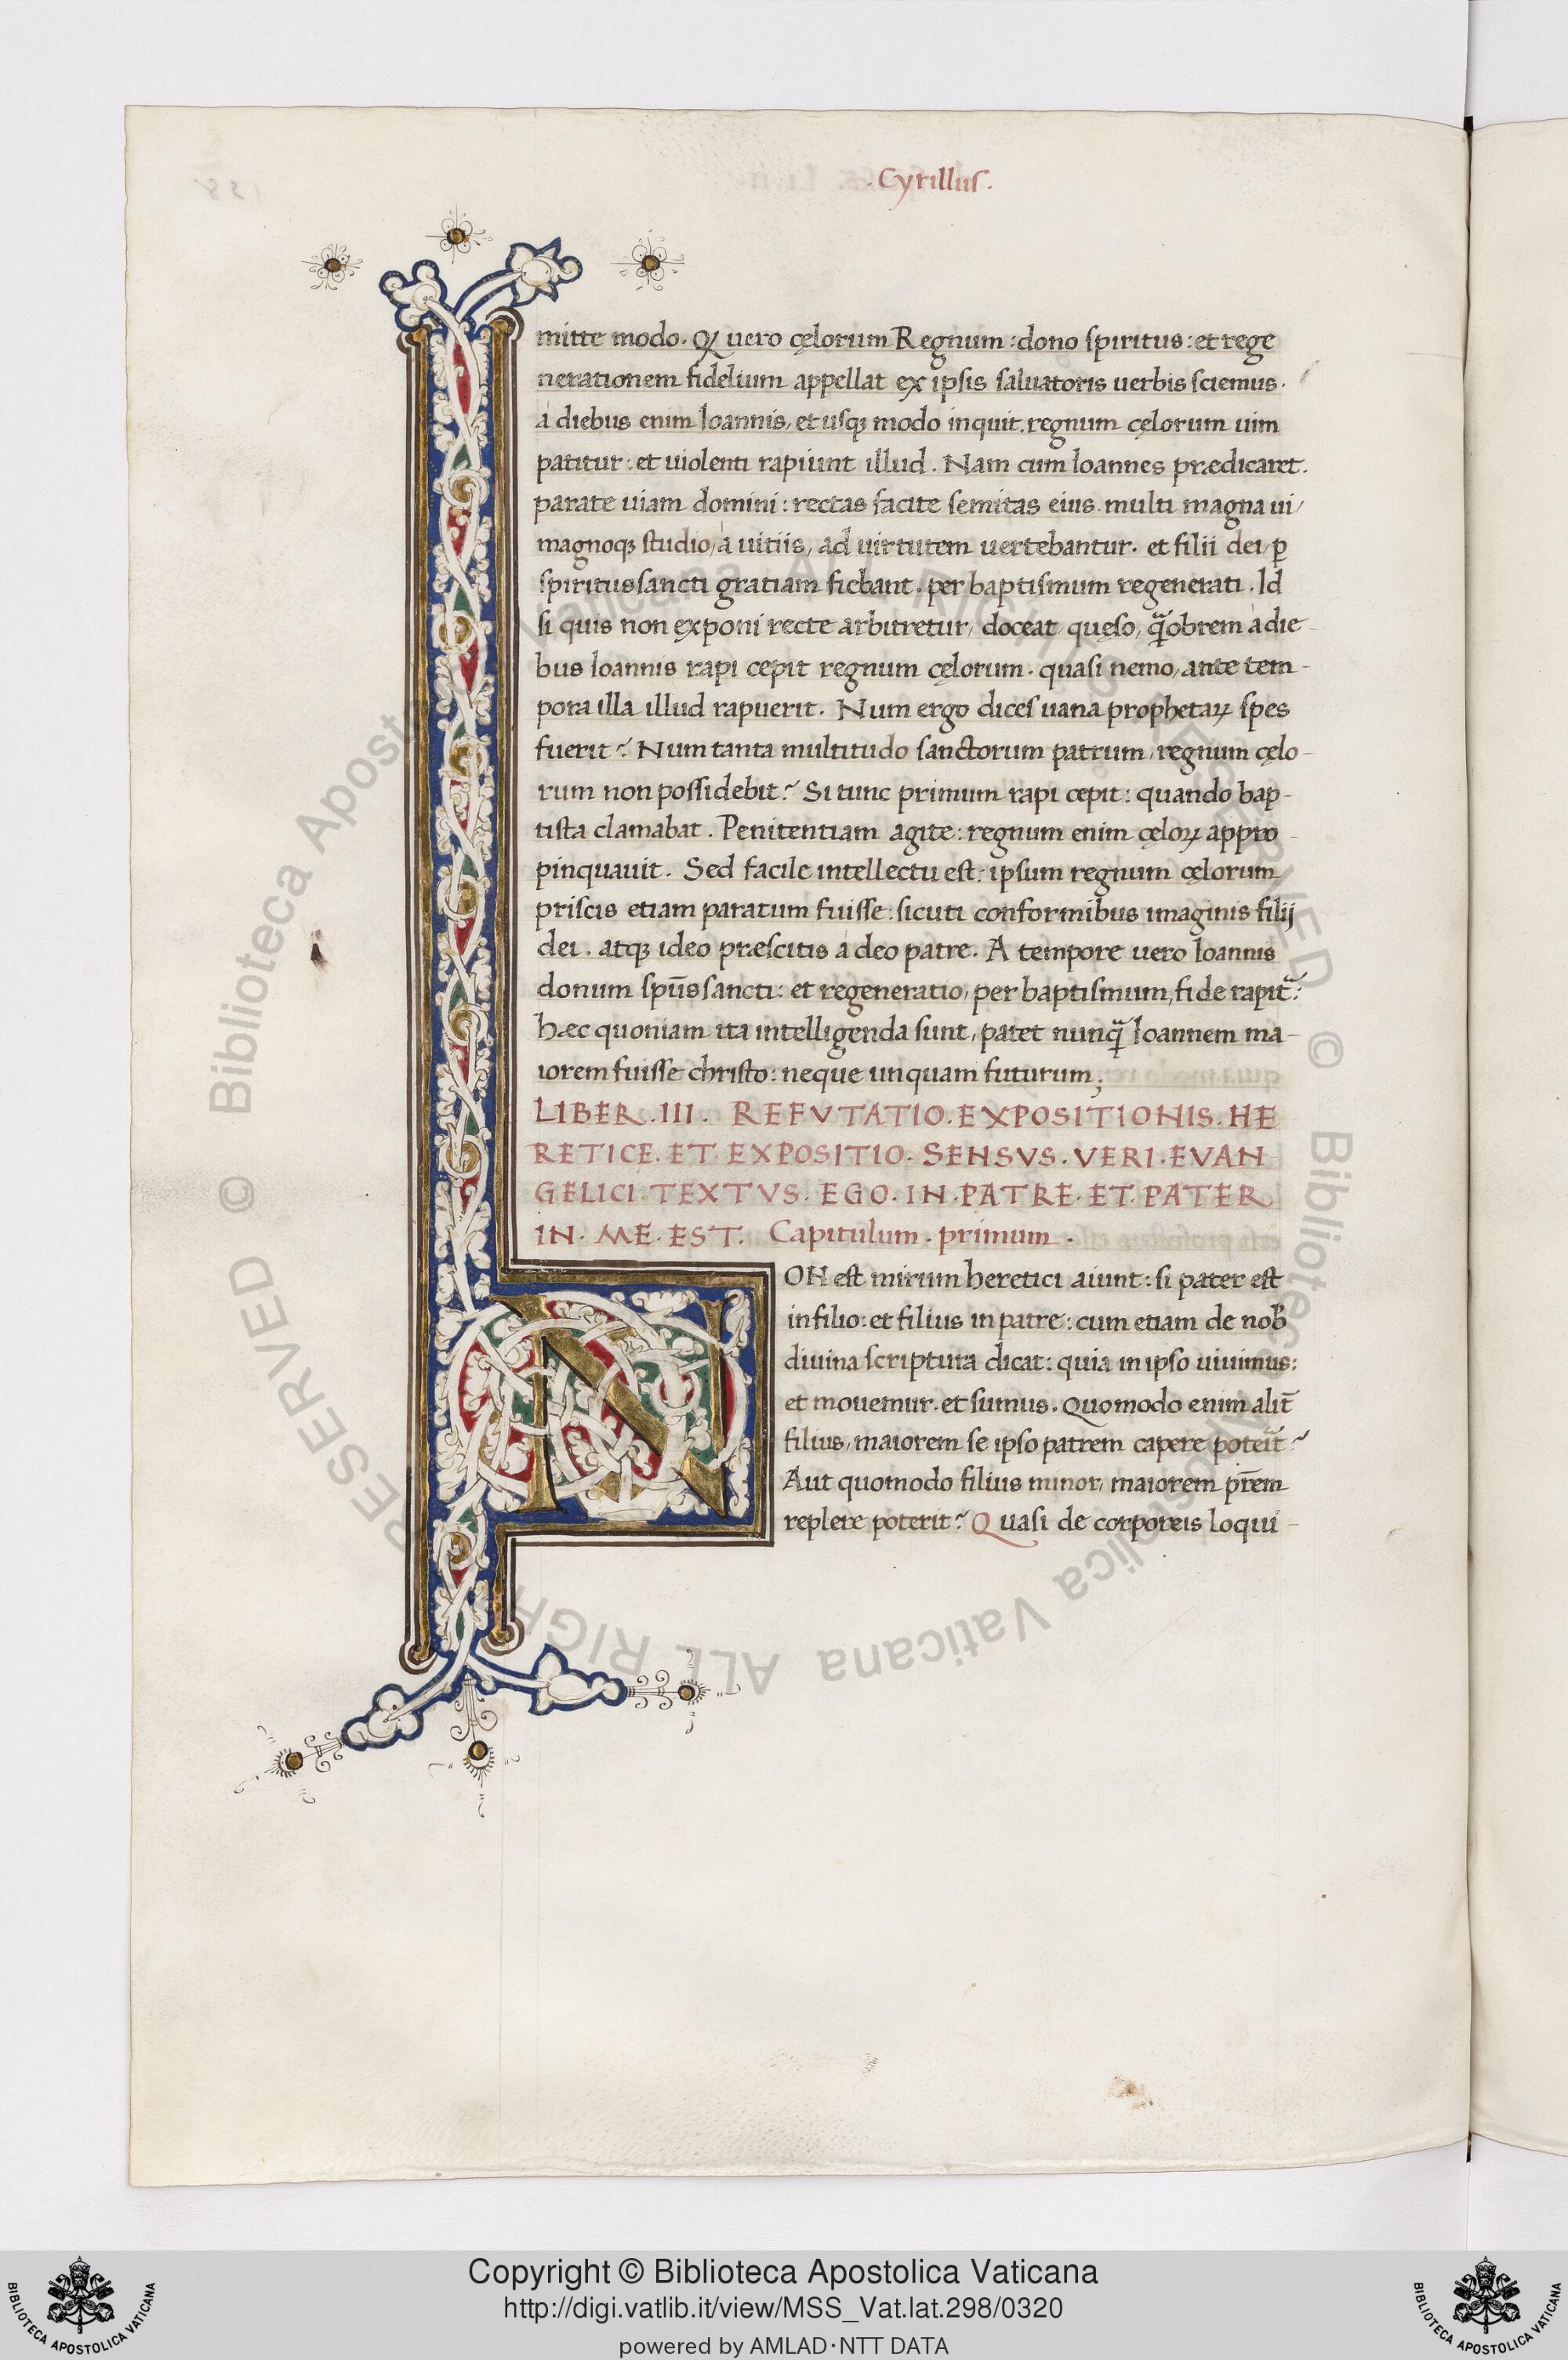 . Cyrillus .
mitte modo. Qꝫ uero cęlorum Regnum : dono spiritus : et rege
nerationem fidelium appellat ex ipsis saluatoris uerbis sciemus.
a diebus enim Ioannis, et usqꝫ modo inquit. regnum cęlorum uim
patitur : et uiolenti rapiunt illud. Nam cum Ioannes prædicaret.
parate uiam domini : rectas facite semitas eius. multi magna ui,
magnoqꝫ studio, a uitiis, ad uirtutem uertebantur. et filii dei, ꝑ
spiritussancti gratiam fiebant. per baptismum regenerati. Id
si quis non exponi recte arbitretur, doceat, quęso, q̃obrem a die-
bus Ioannis rapi cepit regnum cęlorum. quasi nemo, ante tem-
pora illa illud rapuerit. Num ergo dices uana prophetaꝝ spes
fuerit? Num tanta multitudo sanctorum patrum, regnum cęlo-
rum non possidebit? Si tunc primum rapi cepit : quando bap-
tista clamabat. Penitentiam agite : regnum enim cęloꝝ appro-
pinquauit. Sed facile intellectu est : ipsum regnum cęlorum
priscis etiam paratum fuisse : sicuti conformibus imaginis filij
dei. atqꝫ ideo præscitis a deo patre. A tempore uero Ioannis
donum spūs sancti : et regeneratio, per baptismum, fide rapit᷑ :
hæc quoniam ita intelligenda sunt, patet nunq̃ Ioannem ma-
iorem fuisse christo : neque unquam futurum ;
LIBER . III . REFVTATIO . EXPOSITIONIS . HE
RETICE . ET . EXPOSITIO . SENSVS . VERI . EVAN
GELICI . TEXTVS . EGO . IN . PATRE . ET . PATER
IN . ME . EST . Capitulum . primum .
NON est mirum heretici aiunt : si pater est
in filio : et filius in patre : cum etiam de nob̄
diuina scriptura dicat : quia in ipso uiuimus :
et mouemur. et sumus. Quomodo enim alit̄
filius, maiorem se ipso patrem capere poterit?
Aut quomodo filius minor, maiorem pr̄em
replere poterit? Quasi de corporeis loqui-
© Biblioteca Apostolica Vaticana ALL RIGHTS RESERVED
Copyright © Biblioteca Apostolica Vaticana
http://digi.vatlib.it/view/MSS_Vat.lat.298/0320
powered by AMLAD·NTT DATA
BIBLIOTECA APOSTOLICA VATICANA
BIBLIOTECA APOSTOLICA VATICANA